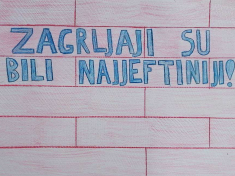 ZAGRLJAJI SU
BILI NAIJEFTINIJI!